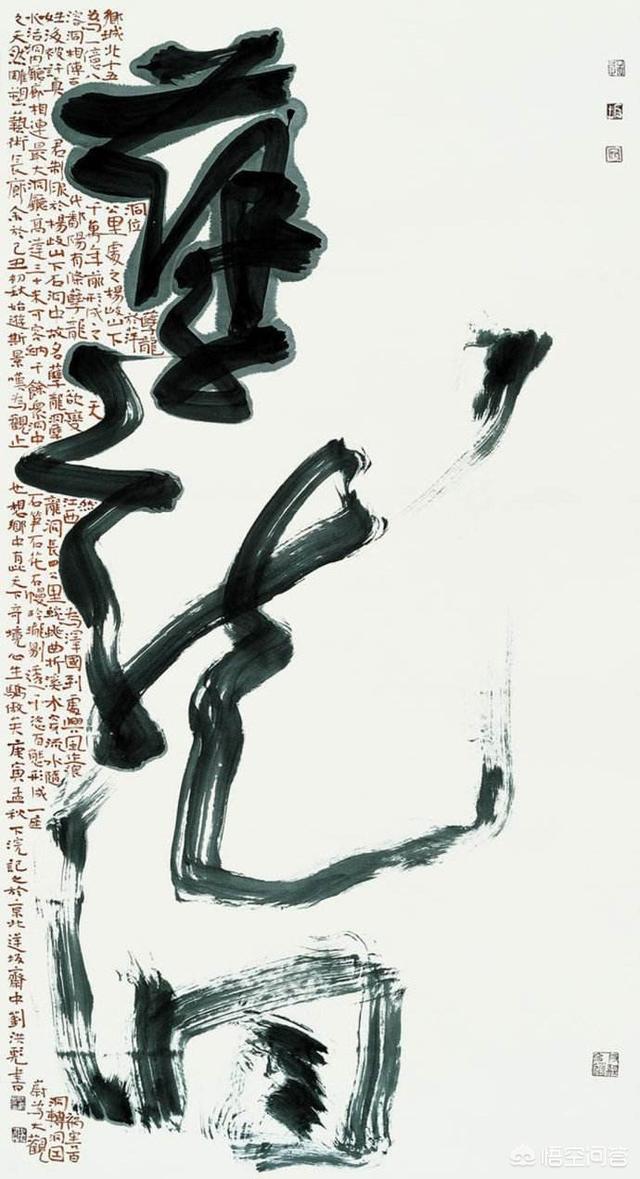 孽龍洞
孽龍
洞位於萍
鄉城北十五公里處之楊岐山下
為一億八千萬年前形成之天然
溶洞相傳古代鄱陽有條孽龍欲變江西為澤國到處興風作浪禍害百
姓後被許真君制服於楊岐山下石洞中故名孽龍洞孽龍洞長四公里蜿蜒曲折溪水常流水隨洞轉洞因
水活洞廳廊相連最大洞廳高達三十米可容納千餘眾洞中石筍石花石幔玲瓏剔透千姿百態形成一座蔚為大觀
之天然雕塑藝術長廊余於己丑初秋始遊斯景嘆為觀止也想鄉中有此天下奇境心生驕傲矣庚寅孟秋下浣記之於京北蓮坂齋中劉洪彪書
悟空问答